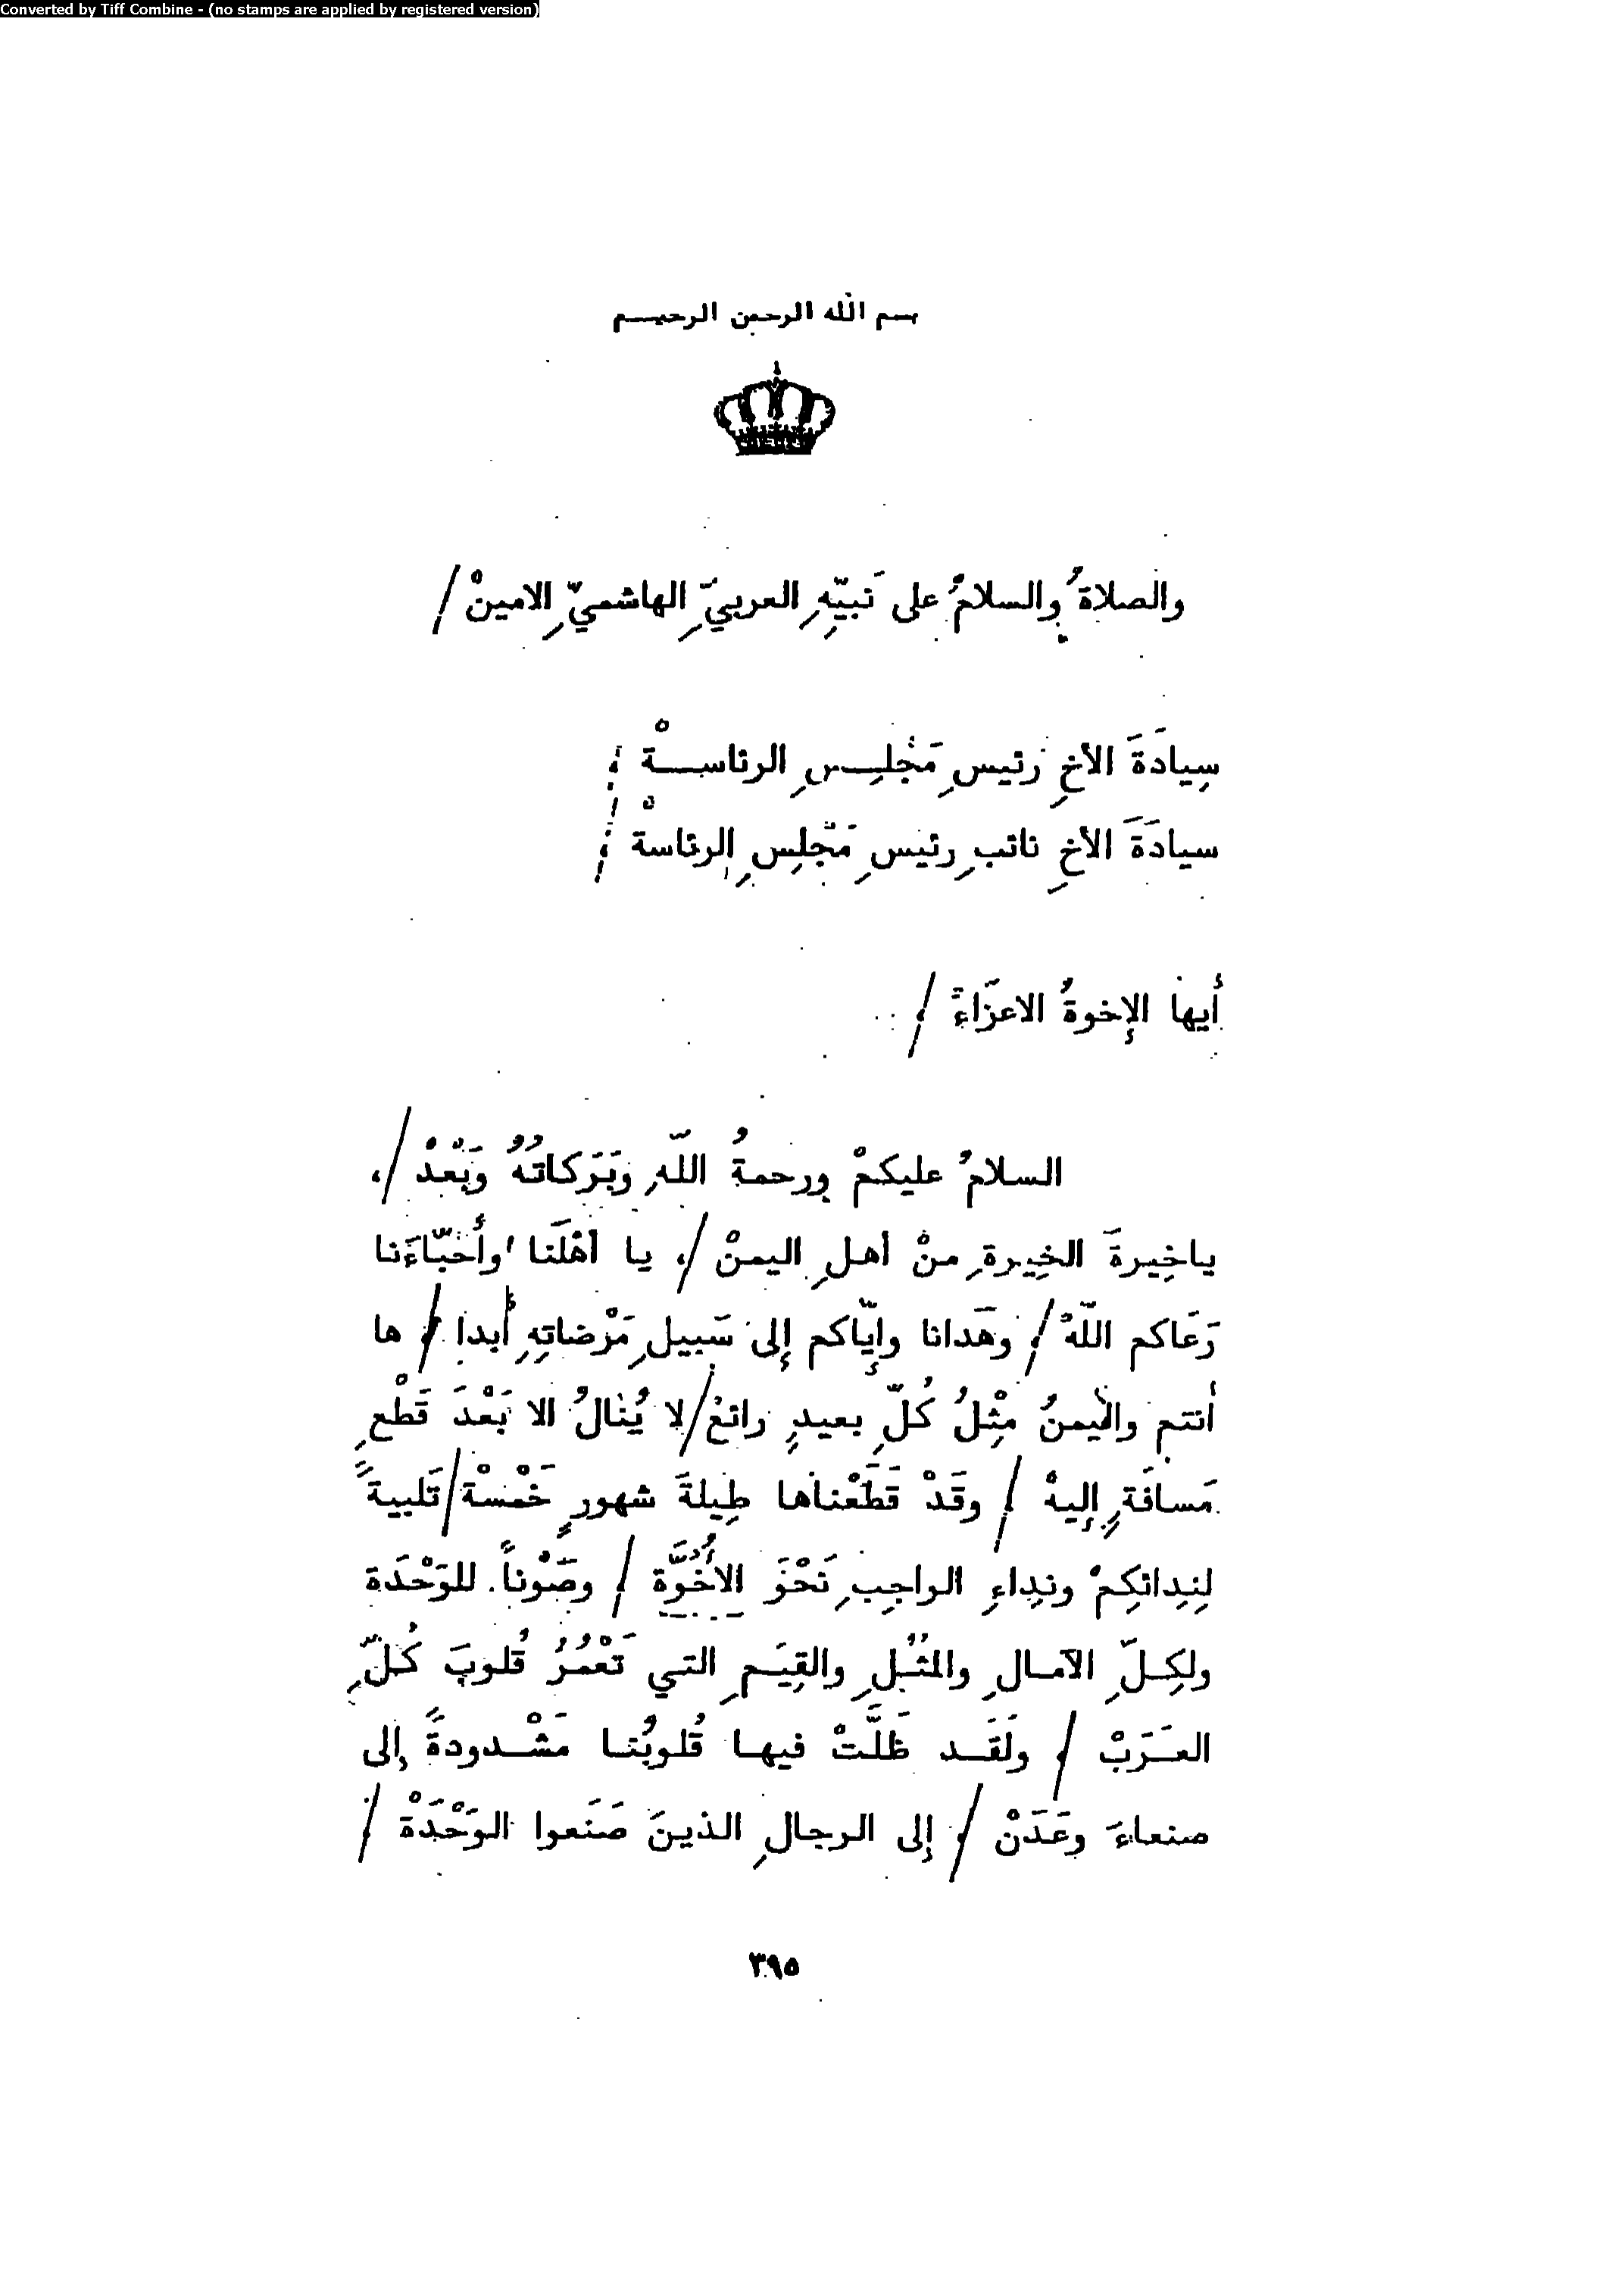 Converted by Tiff Combine - (no stamps are applied by registered version)
بسم الله الرحمن الرحيم
والصلاةُ والسلامُ على نَبيّهِ العربيِّ الهاشميِّ الامينْ /
سِيادَةَ الأخِ رَئيسِ مَجْلِسِ الرئاسةْ ، /
سيادَةَ الأخِ نائبِ رئيسِ مَجْلِسِ الرئاسةْ ، /
أيها الإخوةُ الاعزّاءَ ، /
السلامُ عليكمْ ورحمةُ اللّهِ وبَرَكاتُهُ وَبَعْدْ / ،
ياخِيرةَ الخِيرةِ منْ أهلِ اليمنْ / ، يا أهْلَنا وأحْبّاءَنا
رَعَاكم اللّهُ / ، وهَدانا وإيّاكم إلى سَبيلِ مَرْضاتِهِ أبدا / ، ها
أنتم واليمنُ مِثْلُ كُلِّ بعيدٍ رائعْ / لا يُنالُ الا بَعْدَ قَطْعِ
مَسافَةٍ إليهْ / ، وقَدْ قَطَعْناها طِيلةَ شهورٍ خَمْسةْ / تَلبيةً
لِنِدائكِمْ ونِداءِ الواجِبِ نَحْوَ الأخُوَّة / ، وصَوْناً للوَحْدَة
ولكِلِّ الآمالِ والمُثُلِ والقِيَمِ التي تَعْمُرُ قُلوبَ كُلِّ
العَرَبْ / ، ولَقَد ظَلَّتْ فيها قُلوبُنا مَشْدودةً إلى
صنعاءَ وعَدَنْ / ، إلى الرجالِ الذينَ صَنَعوا الوَحْدَةْ / ،
٣٩٥